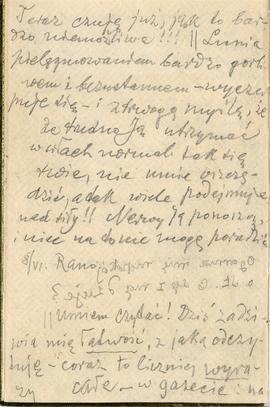 Teraz czuję już, jak to bar-
dzo niemożliwe!!! || Lunia
pielęgnowaniem bardzo gorli-
wem i bezustannem – wyczer-
puje się – i z trwogą myślę, że
że trudno Ją utrzymać
w siłach normal. tak się
rwie, nie umie oszczę-
dzić, a tak wiele podejmuje
nad siły!! Nerwy ją ponoszą,
i nic na to nie mogę poradzić
8/VI. Rano
|| Umiem czytać! Dziś zadzi-
wia mię łatwość, z jaką odczy-
tuję – coraz to liczniej wyra-
zy całe – w gazecie: na